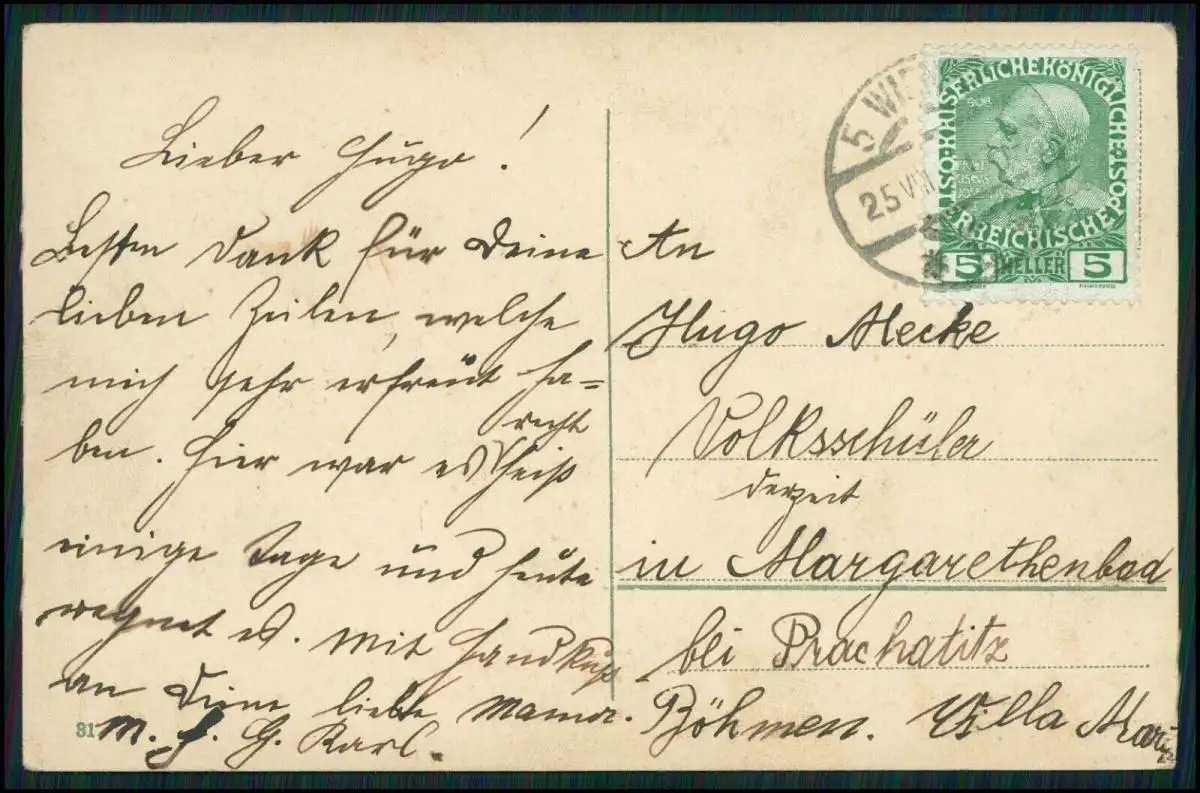 Lieber Hugo!
Besten Dank für Deine
lieben Zeilen, welche
mich sehr erfreut ha=
ben. Hier war es recht heiß
einige Tage und heute
regnet es. Mit Handkuß
an Deine liebe Mama.
M. h. G. Karl.
31
5 WIEN
25 VIII
KAISERLICHE KÖNIGLICHE ÖSTERREICHISCHE POST
5 HELLER 5
An
Hugo Mecke
Volksschüler
derzeit
in Margarethenbad
bei Prachatitz
Böhmen. Villa Marie